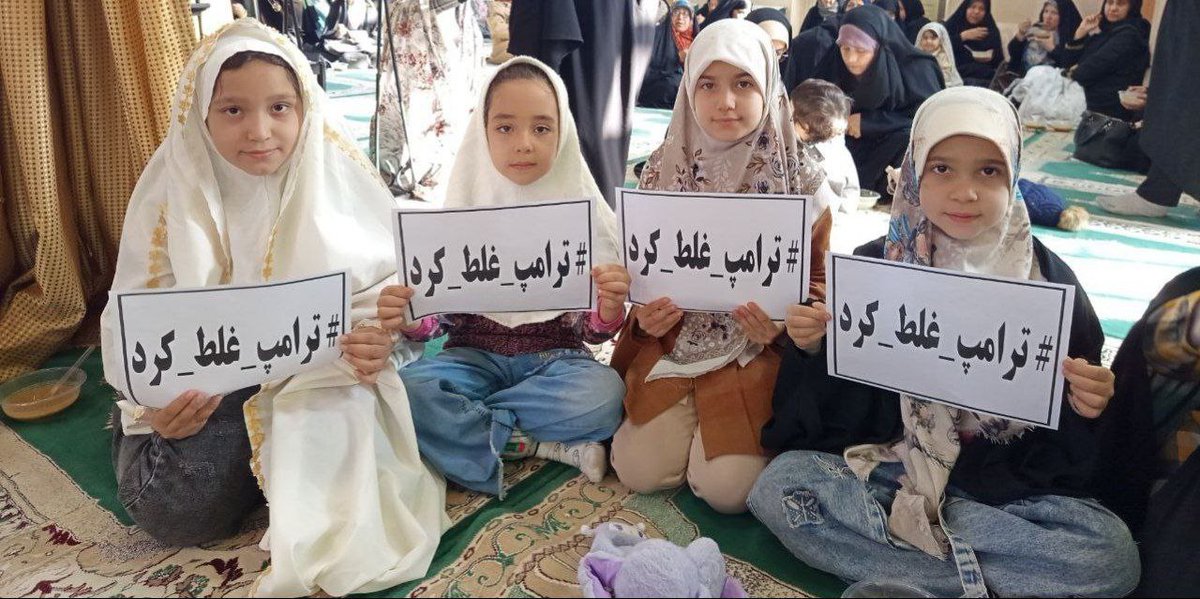 #ترامپ_غلط_کرد
#ترامپ_غلط_کرد
#ترامپ_غلط_کرد
#ترامپ_غلط_کرد